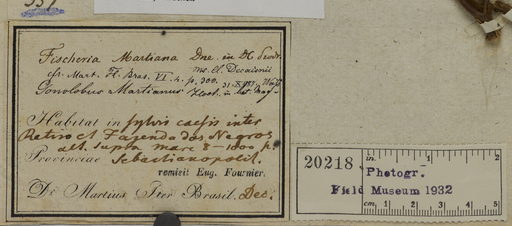 Fischeria Martiana Dne. in DC Prodr.
cfr. Mart. Fl. Bras. VI. 4. p. 300. me. cl. Decaisnii
Gonolobus Martianus
Habitat in sylvis caesis inter
Retiro et Fazenda dos Negros
alt. supra mare 8–1000 p.
Provinciae Sebastianopolit.
remisit Eug. Fournier.
Dr Martius Iter Brasil. Dec.
20218
in. 1 2
Photogr.
Field Museum 1932
cm 1 2 3 4 5